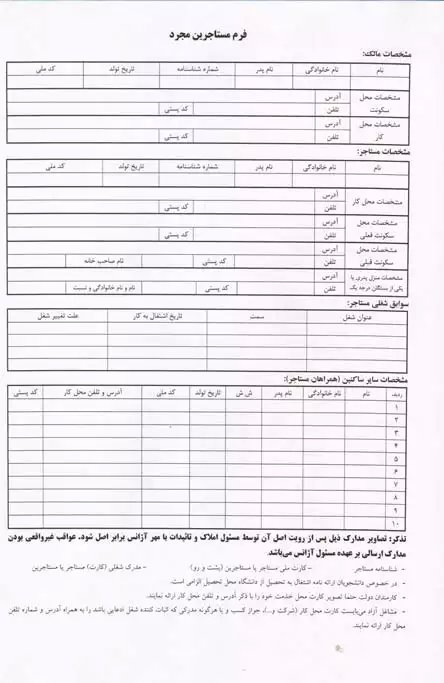 فرم مستاجرین مجرد
مشخصات مالک:
نام نام خانوادگی نام پدر شماره شناسنامه تاریخ تولد کد ملی
مشخصات محل سکونت آدرس
تلفن کد پستی
مشخصات محل کار آدرس
تلفن کد پستی
مشخصات مستاجر:
نام نام خانوادگی نام پدر شماره شناسنامه تاریخ تولد کد ملی
مشخصات محل کار آدرس
تلفن کد پستی
مشخصات محل سکونت فعلی آدرس
تلفن کد پستی
مشخصات محل سکونت قبلی آدرس
تلفن کد پستی نام صاحب خانه
مشخصات منزل پدری یا یکی از بستگان درجه یک آدرس
تلفن کد پستی نام و نام خانوادگی و نسبت
سوابق شغلی مستاجر:
عنوان شغل سمت تاریخ اشتغال به کار علت تغییر شغل
مشخصات سایر ساکنین (همراهان مستاجر):
ردیف نام نام خانوادگی نام پدر ش ش تاریخ تولد کد ملی آدرس و تلفن محل کار کد پستی
۱
۲
۳
۴
۵
۶
۷
۸
۹
۱۰
تذکر: تصاویر مدارک ذیل پس از رویت اصل آن توسط مسئول املاک و تائیدات با مهر آژانس برابر اصل شود. عواقب غیرواقعی بودن
مدارک ارسالی بر عهده مسئول آژانس می‌باشد.
- شناسنامه مستاجر - کارت ملی مستاجر یا مستاجرین (پشت و رو) - مدرک شغلی (کارت) مستاجر یا مستاجرین
- در خصوص دانشجویان ارائه نامه اشتغال به تحصیل از دانشگاه محل تحصیل الزامی است.
- کارمندان دولت حتما تصویر کارت محل خدمت خود را با ذکر آدرس و تلفن محل کار ارائه نمایند.
- مشاغل آزاد می‌بایست کارت محل کار (شرکت و...)، جواز کسب و یا هرگونه مدرکی که اثبات کننده شغل ادعایی باشد را به همراه آدرس و شماره تلفن
محل کار ارائه نمایند.